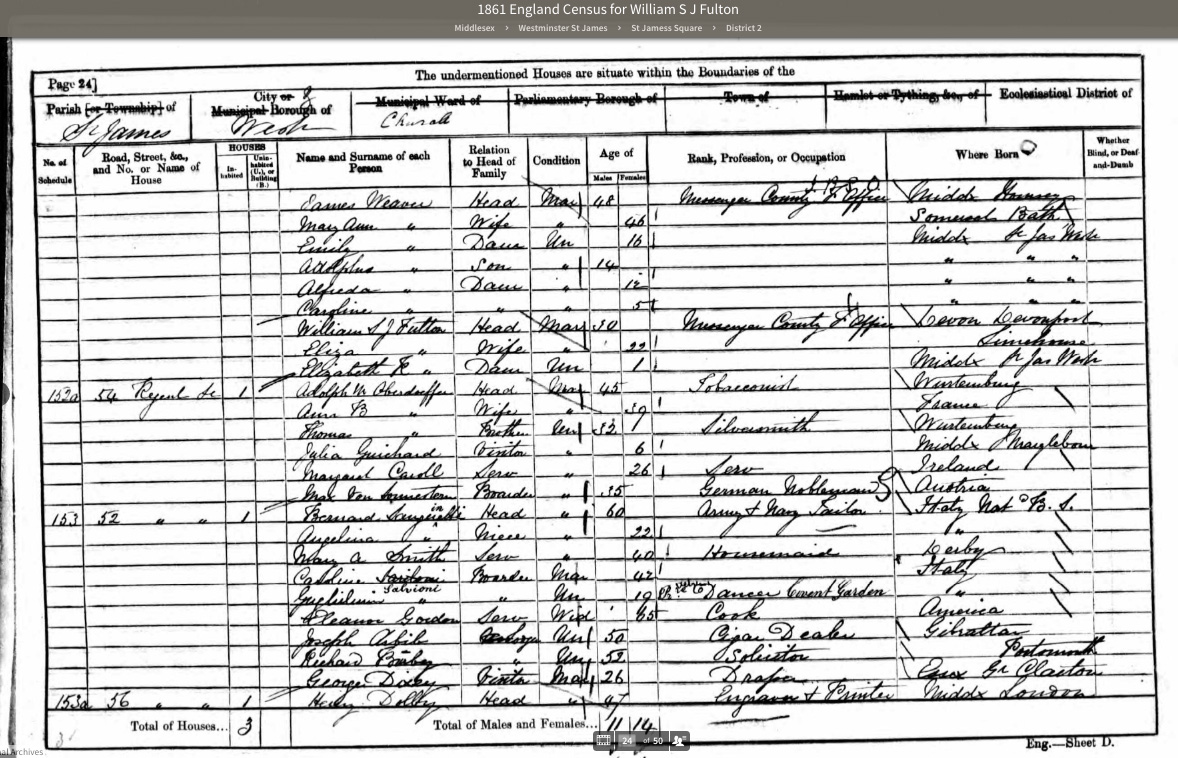 1861 England Census for William S J Fulton
Middlesex > Westminster St James > St Jamess Square > District 2
Page 24]
The undermentioned Houses are situate within the Boundaries of the
Parish [or Township] of
City or
Municipal Borough of
Municipal Ward of
Parliamentary Borough of
Town of
Hamlet or Tything, &c., of
Ecclesiastical District of
St James
Westr
Church
No. of Schedule
Road, Street, &c., and No. or Name of House
HOUSES
Inhabited
Uninhabited (U.), or Building (B.)
Name and Surname of each Person
Relation to Head of Family
Condition
Age of
Males
Females
Rank, Profession, or Occupation
Where Born
Whether Blind, or Deaf-and-Dumb
James Weaver Head Mar 48 Messenger County Office Middx
Mary Ann " Wife " 46 Somerset Bath
Emily " Daur Un 16 Middx St Jas Westr
Adolphus " Son " 14 " " "
Alfreda " Daur " 12 " " "
Caroline " " " 5 " " "
William S J Fulton Head Mar 30 Messenger County Office Devon Devonport
Eliza " Wife " 22 Limehouse
Elizabeth " Daur Un 1 Middx St Jas Westr
152a 54 Regent St 1 Adolph Oberdoffer Head Mar 45 Tobacconist Wurtemburg
Ann B " Wife " 39 France
Thomas " Brother Un 32 Silversmith Wurtemburg
Julia Guichard Visitor " 6 Middx Marylebour
Margaret Caroll Serv " 26 Serv Ireland
Max Von Boarder " 35 German Nobleman Austria
153 52 " " 1 Bernard Head " 60 Army & Navy Tailor Italy Nat B. S.
Angelina " Niece " 22 "
Mary A Smith Serv " 40 Housemaid Derby
Caroline Salvioni Boarder Mar 42 Italy
" " Un 19 Dancer Covent Garden "
Eleanor Gordon Serv Wid 65 Cook America
Joseph Un 50 Cigar Dealer Gibraltar
Richard " Un 52 Solicitor Portsmouth
George Dixey Visitor Mar 26 Draper Essex Gt Clacton
153a 56 " " 1 Henry Dolby Head " 47 Engraver & Printer Middx London
Total of Houses... 3
Total of Males and Females... 11 14
24 of 50
Eng.—Sheet D.
al Archives